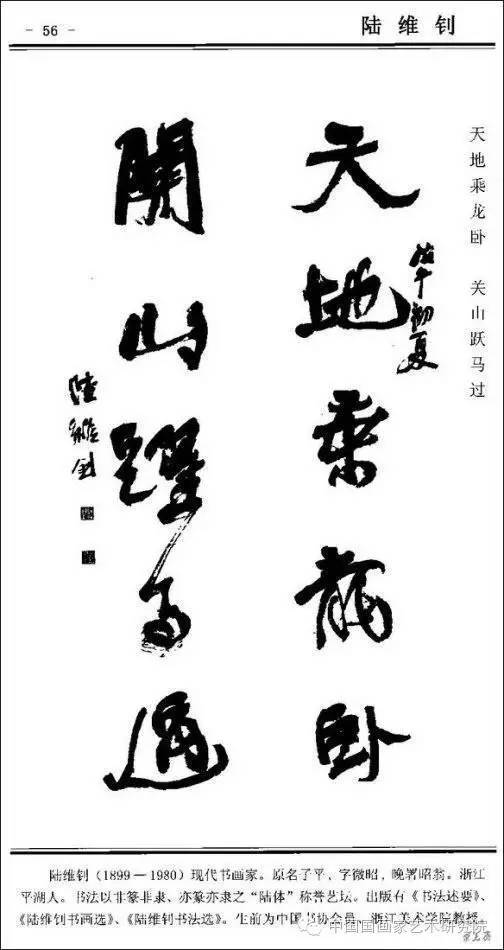 - 56 -
陆维钊
天地乘龙卧 关山跃马过
天地乘龙卧
戊午初夏
關山躍马過
陸維釗
陆维钊（1899－1980）现代书画家。原名子平，字微昭，晚署昭翁。浙江
平湖人。书法以非篆非隶、亦篆亦隶之“陆体”称誉艺坛。出版有《书法述要》、
《陆维钊书画选》、《陆维钊书法选》。生前为中国书协会员、浙江美术学院教授。
中国国画家艺术研究院